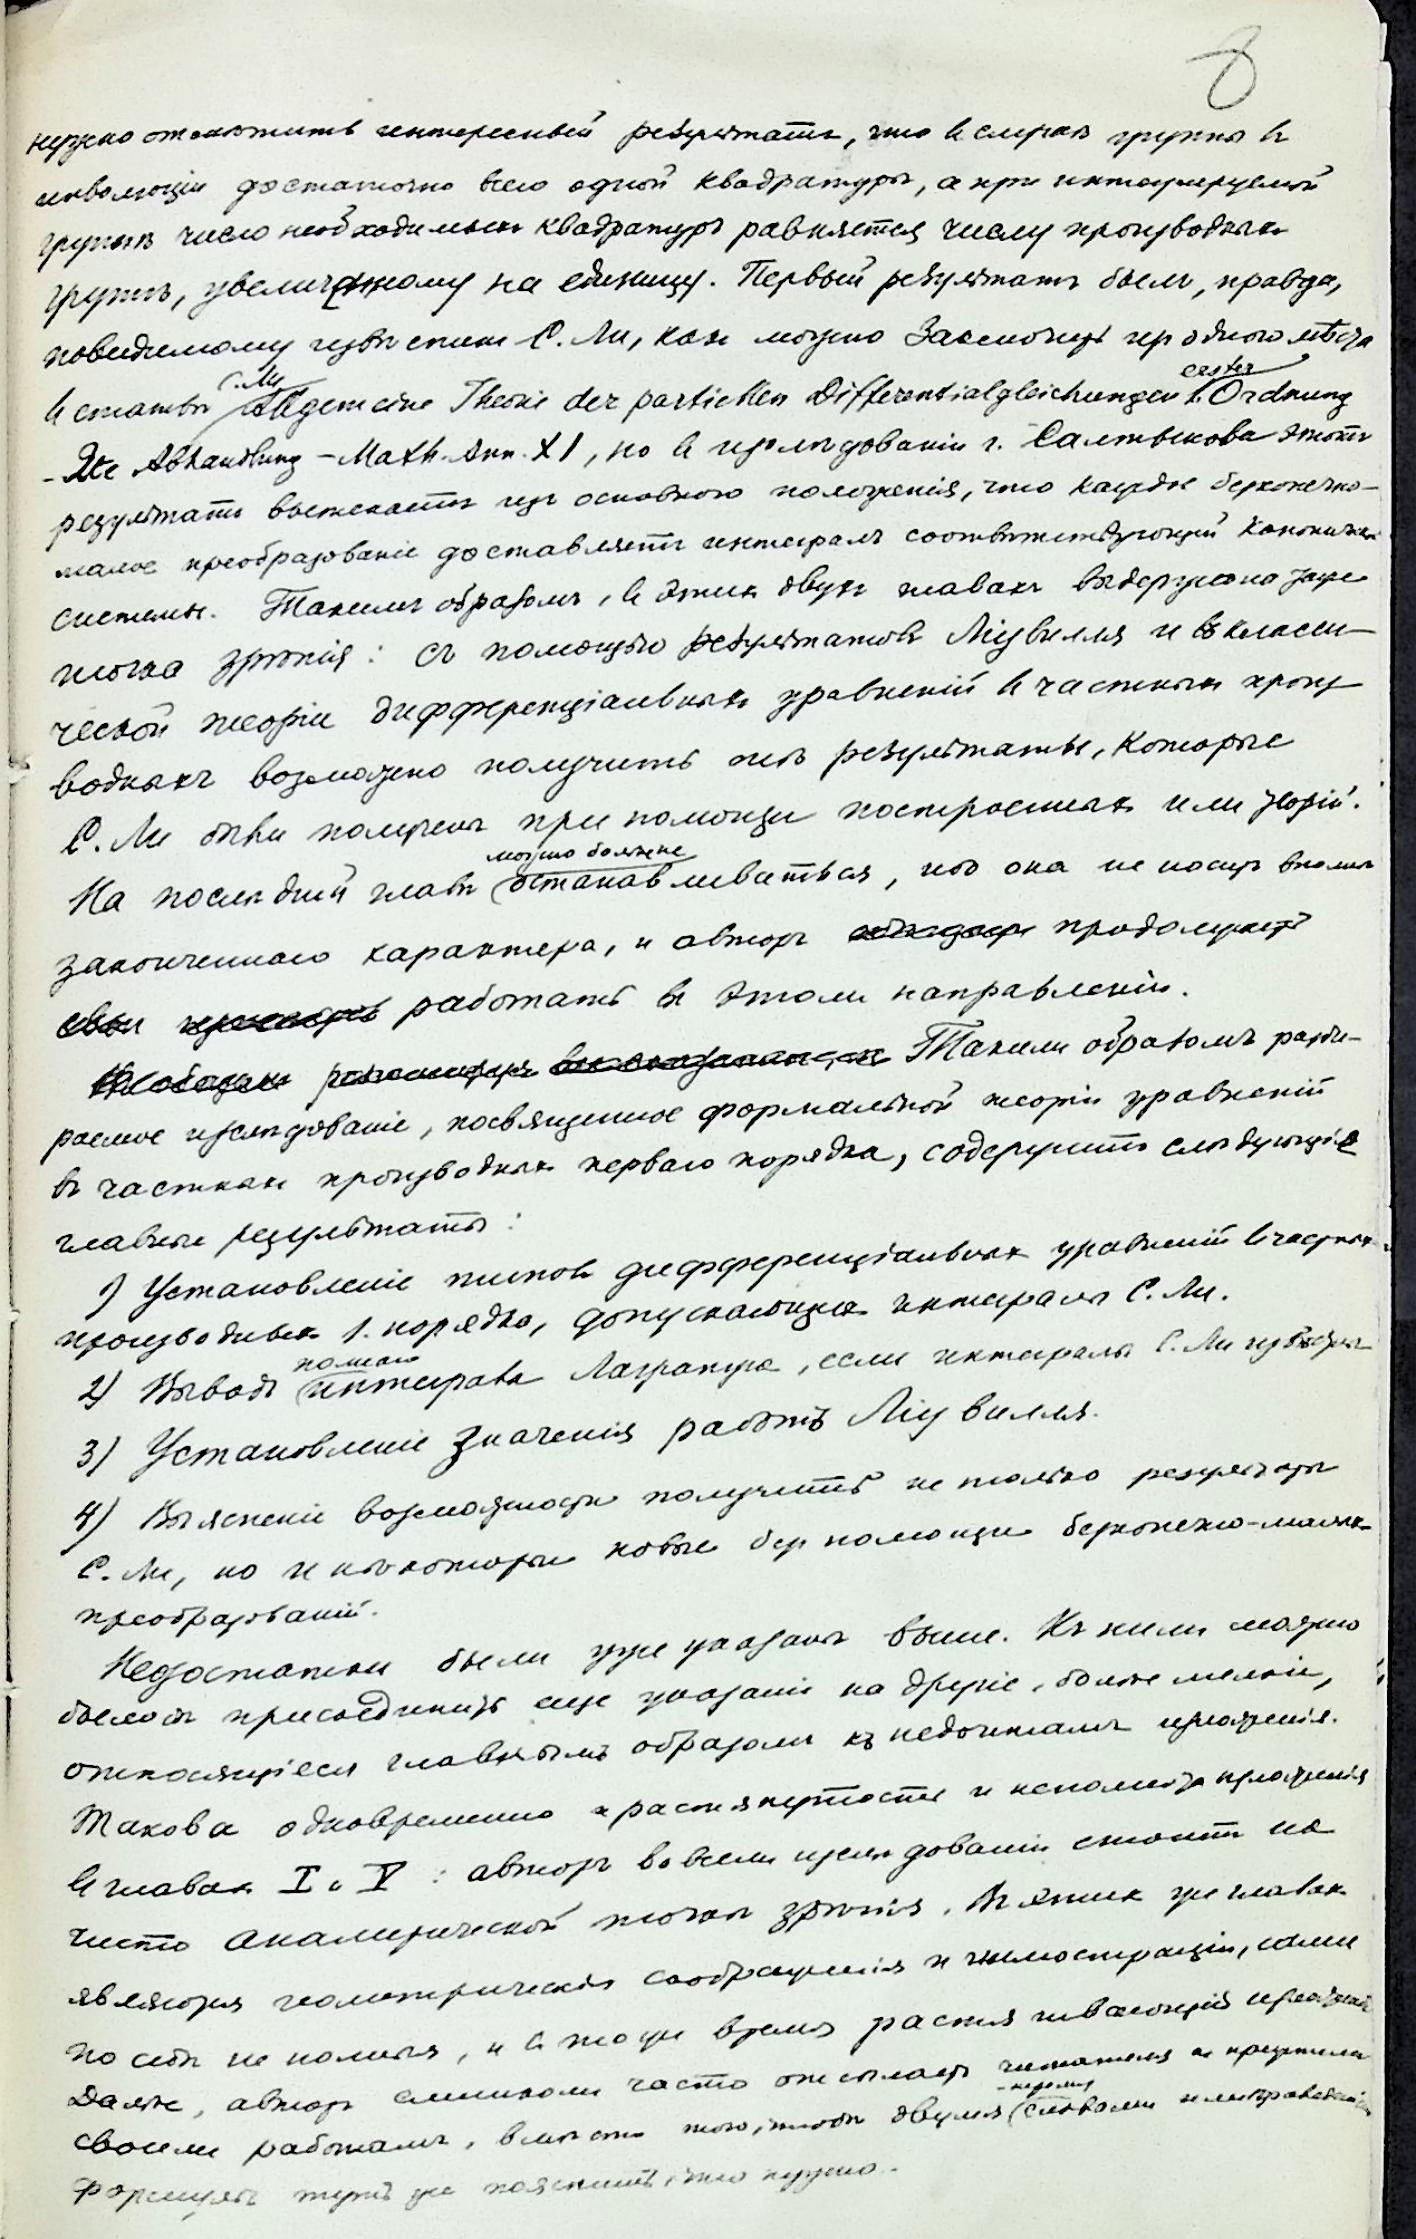 8
нужно отмѣтить интересный результатъ, что в случаѣ группы в
инволюціи достаточно всего одной квадратуры, а при интегрируемой
группѣ число необходимыхъ квадратуръ равняется числу производныхъ
группъ, увеличенному на единицу. Первый результатъ былъ, правда,
повидимому извѣстенъ С. Ли, какъ можно заключить изъ одного мѣста
в статьѣ С. Ли Allgemeine Theorie der partiellen Differentialgleichungen erster Ordnung
- 2te Abhandlung - Math. Ann. XI, но в изслѣдованіи г. Салтыкова этотъ
результатъ вытекаетъ изъ основного положенія, что каждое безконечно-
малое преобразованіе доставляетъ интегралъ соотвѣтствующей канонической
системы. Такимъ образомъ, в этихъ двухъ главахъ выдержана
точка зрѣнія: съ помощью результатовъ Ліувилля и въ класси-
ческой теоріи дифференціальныхъ уравненій в частныхъ произ-
водныхъ возможно получить тѣ результаты, которые
С. Ли были получены при помощи построенныхъ имъ теорій.
На послѣдней главѣ можно болѣе не останавливаться, ибо она не носитъ вполнѣ
законченнаго характера, и авторъ продолжаетъ
работать в этомъ направленіи.
Такимъ образомъ разби-
раемое изслѣдованіе, посвященное формальной теоріи уравненій
въ частныхъ производныхъ перваго порядка, содержитъ слѣдующіе
главные результаты:
1) Установленіе типовъ дифференціальныхъ уравненій в частныхъ
производныхъ 1. порядка, допускающихъ интегралы С. Ли.
2) Выводъ полнаго интеграла Лагранжа, если интегралы С. Ли извѣстны
3) Установленіе значенія работъ Ліувилля.
4) Выясненіе возможности получить не только результаты
С. Ли, но и нѣкоторые новые безъ помощи безконечно-малыхъ
преобразованій.
Недостатки были уже указаны выше. Къ нимъ можно
было бы присоединить еще указаніе на другіе, болѣе мелкіе,
относящіеся главнымъ образомъ къ недочетамъ изложенія.
Такова одновременно и растянутость и неполнота изложенія
в главахъ I и V: авторъ во всемъ изслѣдованіи стоитъ на
чисто аналитической точкѣ зрѣнія. Въ этихъ же главахъ
являются геометрическія соображенія и иллюстраціи, сами
по себѣ не полныя, и в то же время растягивающія изложеніе
Далѣе, авторъ слишкомъ часто отсылаетъ читателя к прежнимъ
своимъ работамъ, вмѣсто того, чтобы двумя-тремя словами или приведеніемъ
формулъ тутъ же пояснить, что нужно.